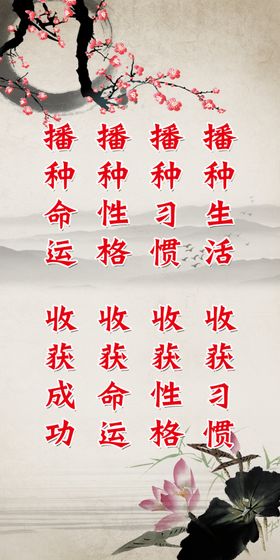 播种生活
收获习惯
播种习惯
收获性格
播种性格
收获命运
播种命运
收获成功